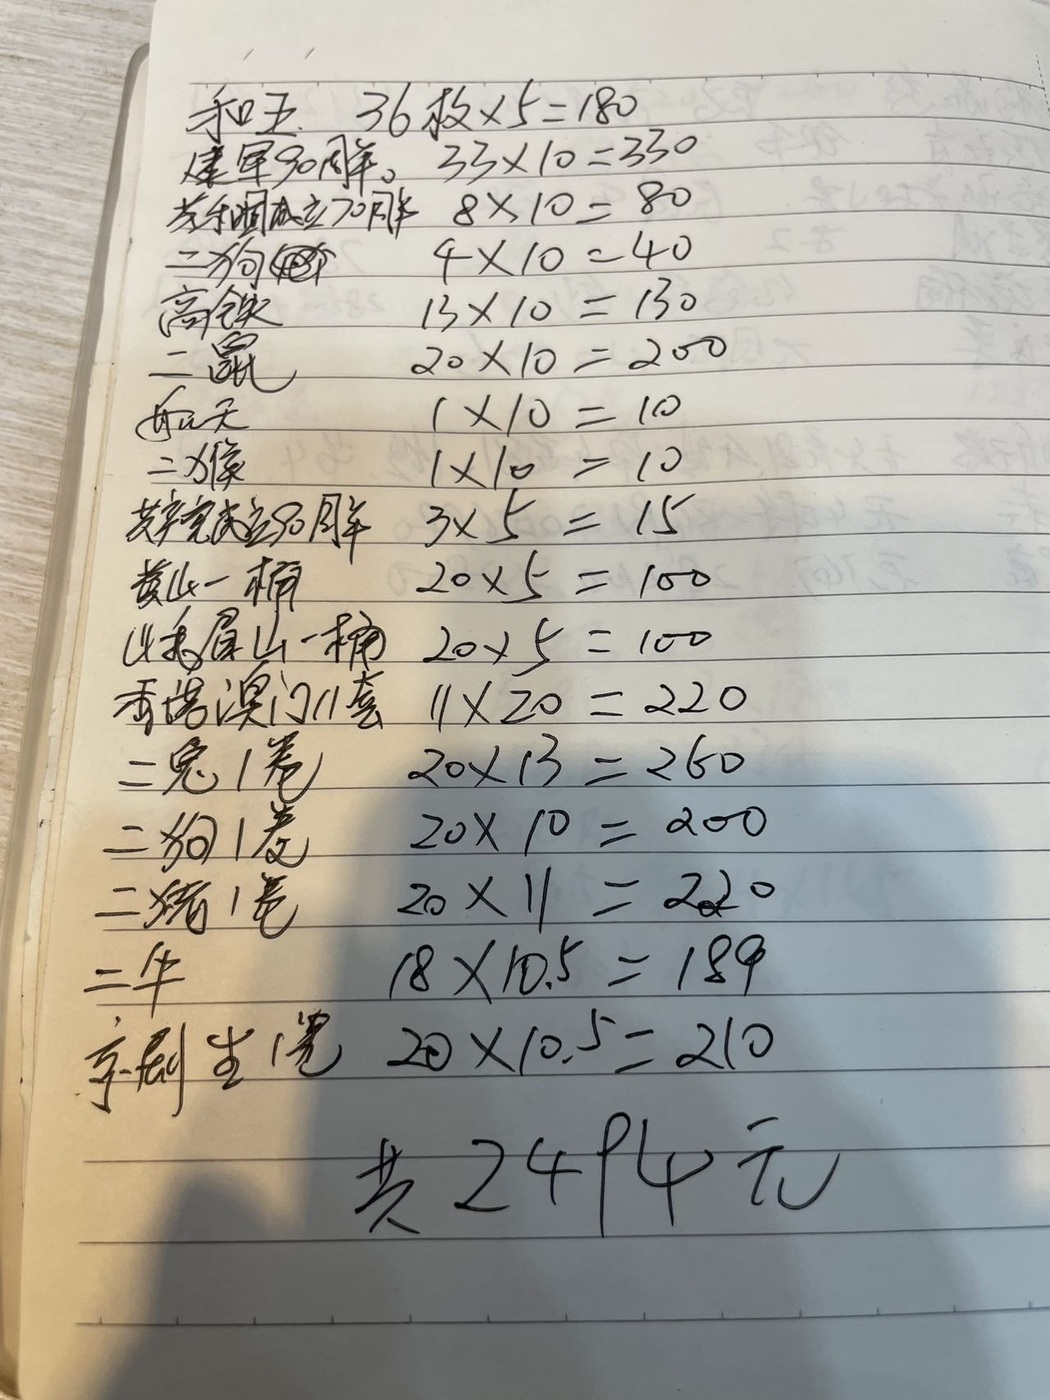 和五 36枚×5=180
建军90周年。 33×10=330
共和国成立70周年 8×10=80
二狗 4×10=40
高铁 13×10=130
二鼠 20×10=200
航天 1×10=10
二猴 1×10=10
共产党成立90周年 3×5=15
黄山一桶 20×5=100
峨眉山一桶 20×5=100
香港澳门11套 11×20=220
二兔1卷 20×13=260
二狗1卷 20×10=200
二猪1卷 20×11=220
二牛 18×10.5=189
京剧生1卷 20×10.5=210
共2494元